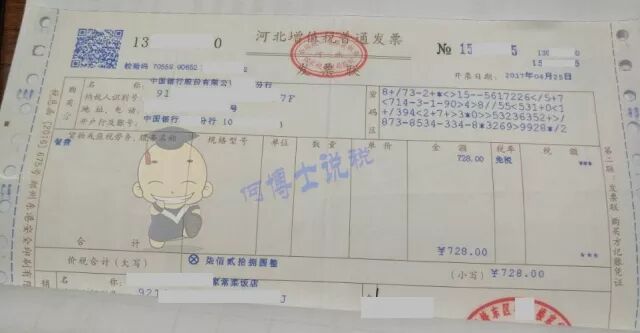 河北增值税普通发票
13 0
№ 15 5
校验码 70559 90652
发票联
开票日期:2017年04月25日
名 称:中国银行股份有限公 分行
纳税人识别号:91 7F
地址、电话:
开户行及账号:中国银行 分行10
购买方
密码区
8+/73-2+*<>15--5617226</5+7
<714-3-1-90>4>8//55<531+0<1
+/394<2+7>+3*0>>53236352+>/
873-8534-334-8*3269>9928*/2
货物或应税劳务、服务名称 规格型号 单位 数量 单价 金额 税率 税额
餐费 728.00 免税 ***
何博士说税
合计 ¥728.00 ***
价税合计(大写) ⊗柒佰贰拾捌圆整 (小写)¥728.00
名 称: 家常菜饭店
921 J
第二联:发票联 购买方记账凭证